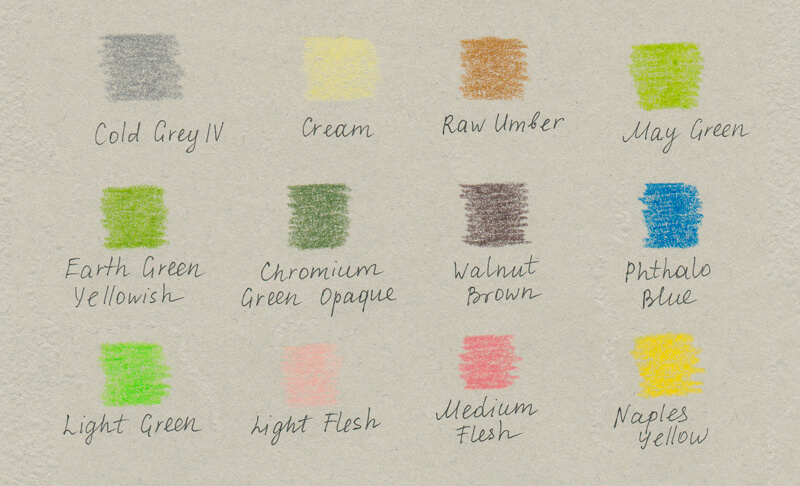 Cold Grey IV
Cream
Raw Umber
May Green
Earth Green
Yellowish
Chromium
Green Opaque
Walnut
Brown
Phthalo
Blue
Light Green
Light Flesh
Medium
Flesh
Naples
Yellow